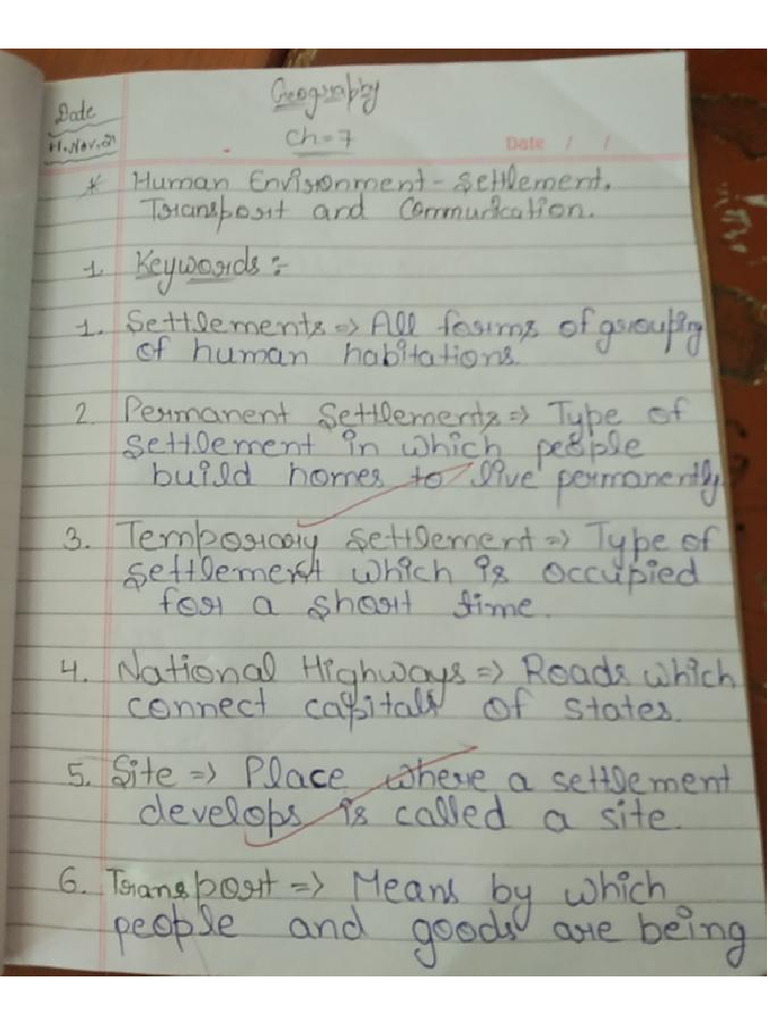 Geography
Date
Ch=7
11.Nov.21
Date / /
* Human Environment - Settlement,
Transport and Communication.
1. Keywords :-
1. Settlements => All forms of grouping
of human habitations.
2. Permanent Settlements => Type of
settlement in which people
build homes to live permanently
3. Temporary Settlement => Type of
settlement which is occupied
for a short time.
4. National Highways => Roads which
connect capitals of states.
5. Site => Place where a settlement
develops is called a site.
6. Transport => Means by which
people and goods are being